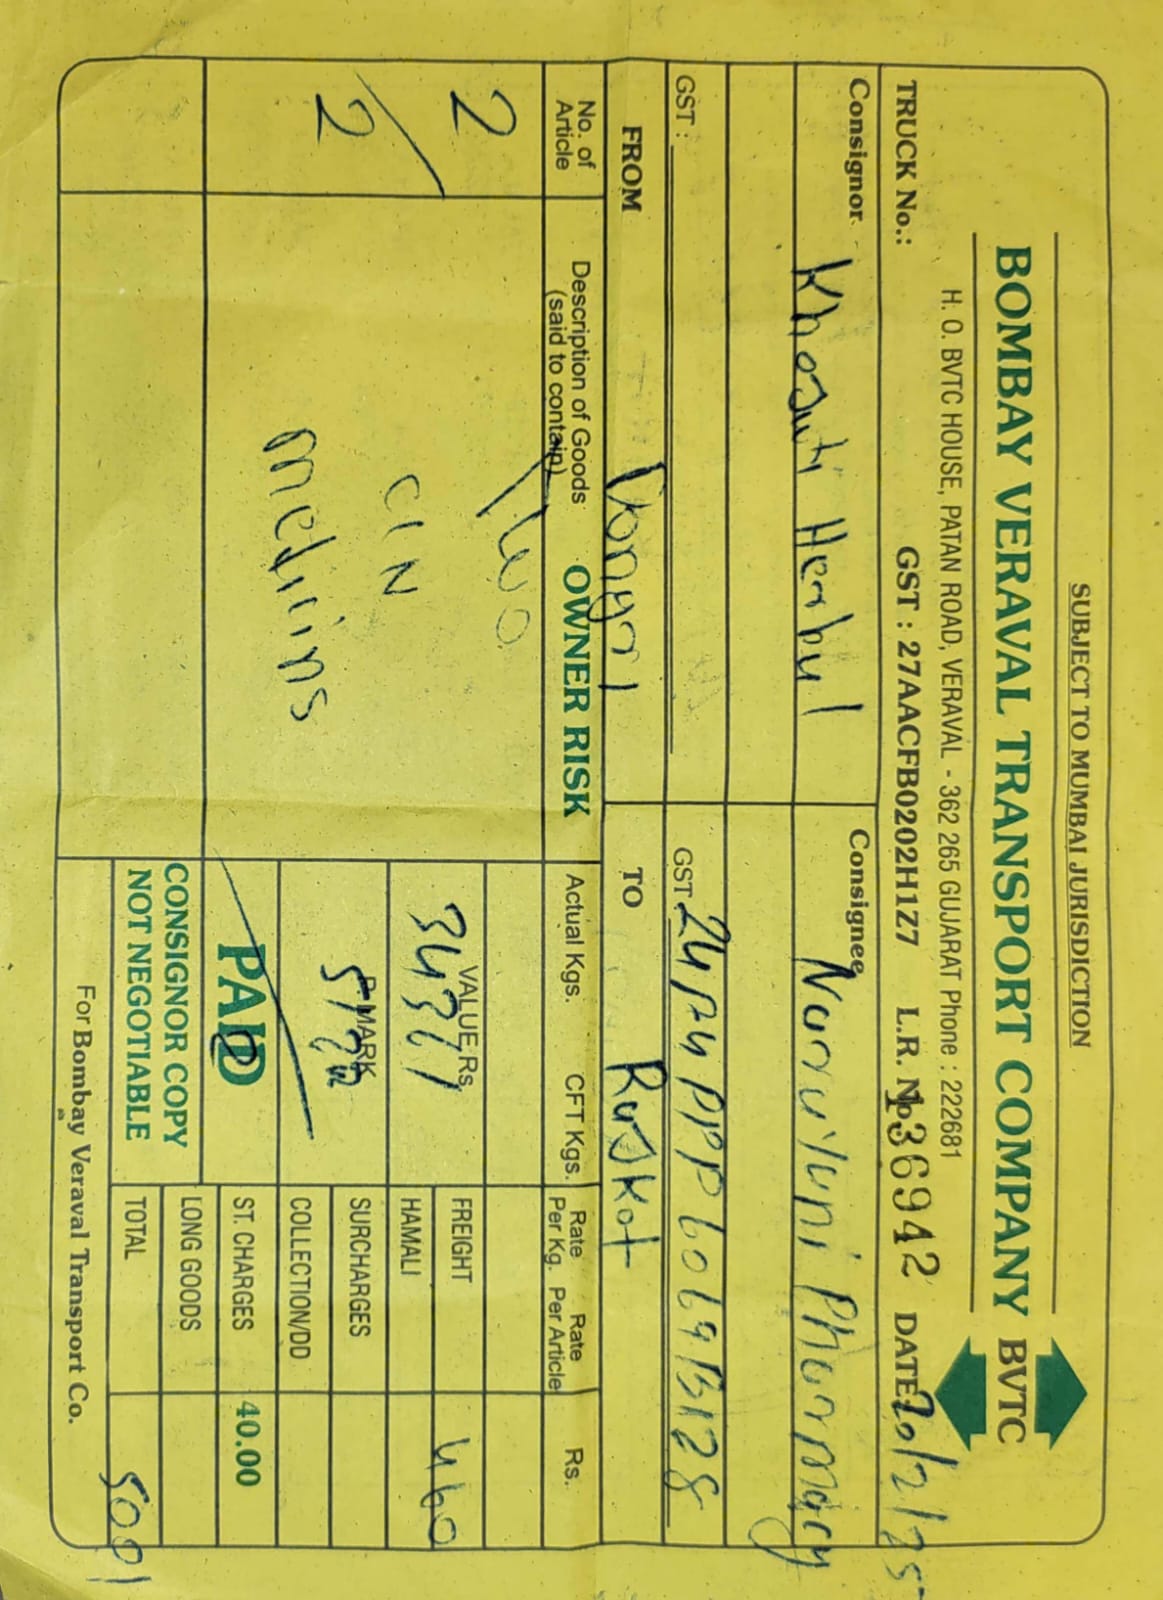 SUBJECT TO MUMBAI JURISDICTION
BOMBAY VERAVAL TRANSPORT COMPANY BVTC
H. O. BVTC HOUSE, PATAN ROAD, VERAVAL - 362 265 GUJARAT Phone : 222681
TRUCK No.: GST : 27AACFB0202H1Z7 L.R. No. 36942 DATE: 20/2/25
Consignor Khosuti Herbul Consignee Narulyuni Phurmacy
GST : GST
FROM Dongri TO Rajkot
No. of Article Description of Goods (said to contain) OWNER RISK Actual Kgs. CFT Kgs. Rate Per Kg. Rate Per Article Rs.
2 / 2
Two
CIN
Medicins
VALUE Rs
P. MARK
PAID
CONSIGNOR COPY
NOT NEGOTIABLE
FREIGHT 460
HAMALI
SURCHARGES
COLLECTION/DD
ST. CHARGES 40.00
LONG GOODS
TOTAL 500/
For Bombay Veraval Transport Co.